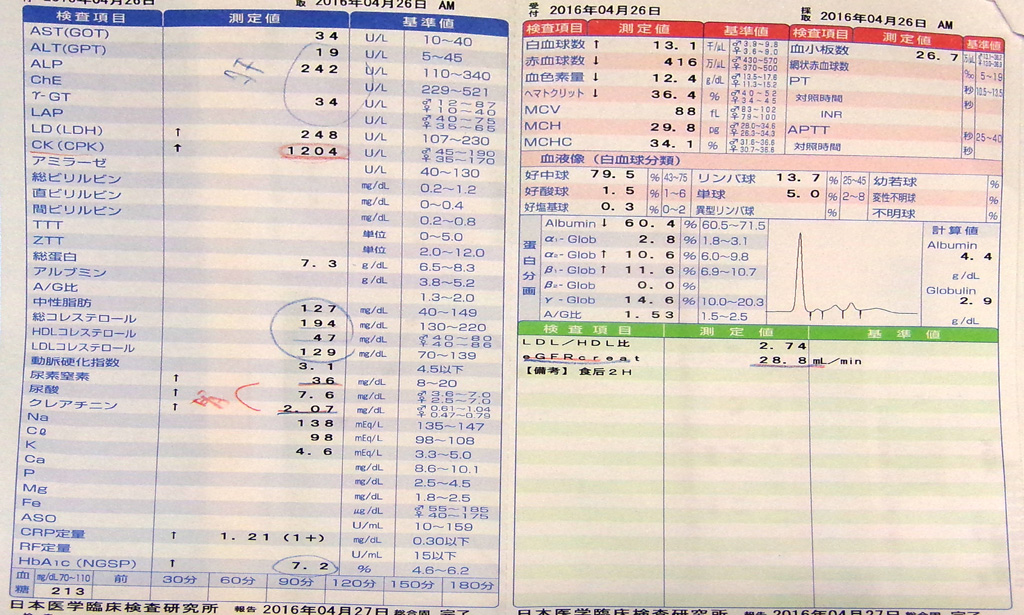 付 取 2016年04月26日 AM
検査項目 測定値 基準値
AST(GOT) 34 U/L 10〜40
ALT(GPT) 19 U/L 5〜45
ALP 242 U/L 110〜340
ChE U/L 229〜521
γ-GT 34 U/L ♂12〜87 ♀10〜40
LAP U/L ♂40〜75 ♀35〜65
LD(LDH) ↑ 248 U/L 107〜230
CK(CPK) ↑ 1204 U/L ♂45〜190 ♀35〜170
アミラーゼ U/L 40〜130
総ビリルビン mg/dL 0.2〜1.2
直ビリルビン mg/dL 0〜0.4
間ビリルビン mg/dL 0.2〜0.8
TTT 単位 0〜5.0
ZTT 単位 2.0〜12.0
総蛋白 7.3 g/dL 6.5〜8.3
アルブミン g/dL 3.8〜5.2
A/G比 1.3〜2.0
中性脂肪 127 mg/dL 40〜149
総コレステロール 194 mg/dL 130〜220
HDLコレステロール 47 mg/dL ♂40〜80 ♀40〜86
LDLコレステロール 129 mg/dL 70〜139
動脈硬化指数 3.1 4.5以下
尿素窒素 ↑ 36 mg/dL 8〜20
尿酸 ↑ 7.6 mg/dL ♂3.6〜7.0 ♀2.5〜7.0
クレアチニン ↑ 2.07 mg/dL ♂0.61〜1.04 ♀0.47〜0.79
Na 138 mEq/L 135〜147
Cℓ 98 mEq/L 98〜108
K 4.6 mEq/L 3.3〜5.0
Ca mg/dL 8.6〜10.1
P mg/dL 2.5〜4.5
Mg mg/dL 1.8〜2.5
Fe μg/dL ♂55〜185 ♀40〜175
ASO U/mL 10〜159
CRP定量 ↑ 1.21 (1+) mg/dL 0.30以下
RF定量 U/mL 15以下
HbA1c(NGSP) ↑ 7.2 % 4.6〜6.2
血糖 mg/dL70〜110 前 30分 60分 90分 120分 150分 180分
213
日本医学臨床検査研究所 報告 2016年04月27日 総合圏 完了
受付 2016年04月26日 採取 2016年04月26日 AM
検査項目 測定値 基準値 検査項目 測定値 基準値
白血球数 ↑ 13.1 千/μL ♂3.9〜9.8 ♀3.6〜9.0 血小板数 26.7
赤血球数 ↓ 416 万/μL ♂430〜570 ♀370〜500 網状赤血球数 ‰ 5〜19
血色素量 ↓ 12.4 g/dL ♂13.5〜17.6 ♀11.3〜15.2 PT 秒 10.5〜13.5
ヘマトクリット ↓ 36.4 % ♂40〜52 ♀34〜45 対照時間 秒
MCV 88 fL ♂83〜102 ♀79〜100 INR
MCH 29.8 pg ♂28.0〜34.6 ♀26.3〜34.3 APTT 秒 25〜40
MCHC 34.1 % ♂31.6〜36.6 ♀30.7〜36.6 対照時間 秒
血液像 (白血球分類)
好中球 79.5 % 43〜75 リンパ球 13.7 % 25〜45 幼若球 %
好酸球 1.5 % 1〜6 単球 5.0 % 2〜8 変性不明球 %
好塩基球 0.3 % 0〜2 異型リンパ球 % 不明球 %
蛋白分画
Albumin ↓ 60.4 % 60.5〜71.5 計算値
α₁- Glob 2.8 % 1.8〜3.1 Albumin
α₂- Glob ↑ 10.6 % 6.0〜9.8 4.4 g/dL
β₁- Glob ↑ 11.6 % 6.9〜10.7
β₂- Glob 0.0 % Globulin
γ- Glob 14.6 % 10.0〜20.3 2.9 g/dL
A/G比 1.53 1.5〜2.5
検査項目 測定値 基準値
LDL/HDL比 2.74
eGFRcreat 28.8 mL/min
【備考】 食后2H
日本医学臨床検査研究所 報告 2016年04月27日 総合圏 完了